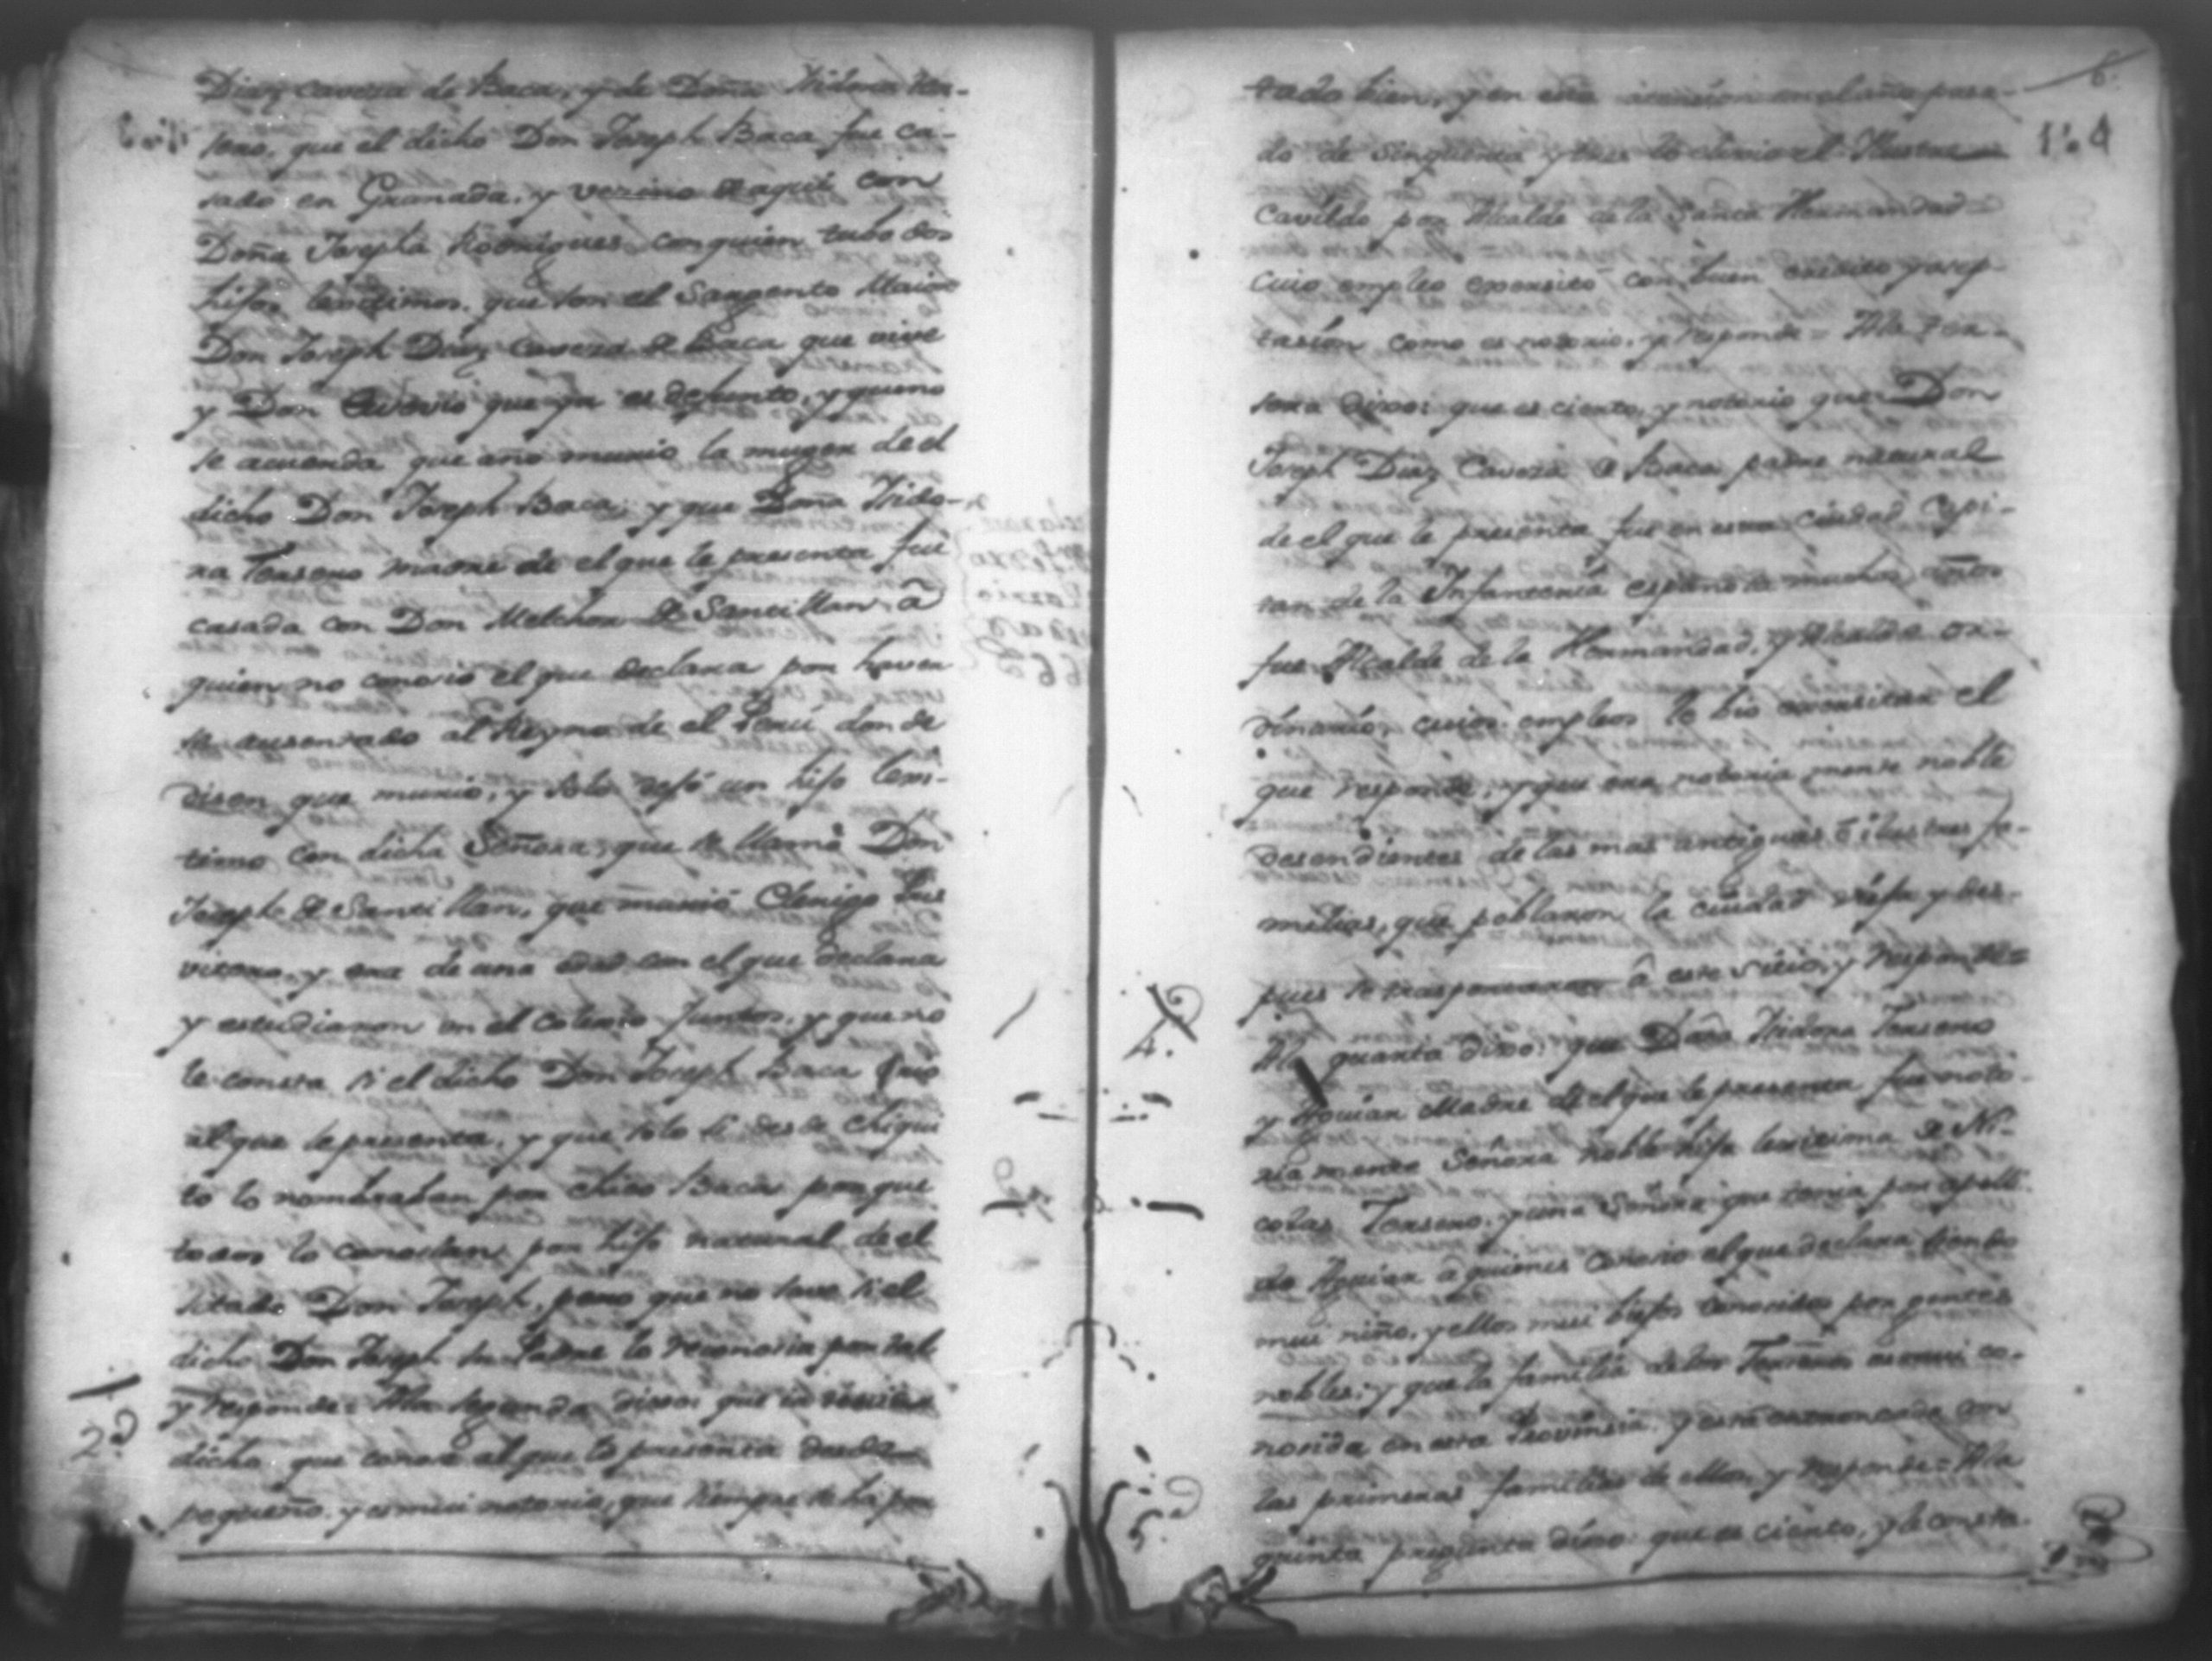 Diaz Caveza de Baca, y de Doña Isidora ter-
seno, que el dicho Don Joseph Baca fue ca-
sado en Granada, y vezino de aqui con
Doña Josepha Rodriguez con quien tubo dos
hijos lexitimos, que son el Sargento Maior
Don Joseph Diaz Caveza de Baca que vive
y Don que ya es defunto, y que no
se acuerda que año murio la muger de el
dicho Don Joseph Baca; y que Doña Isido-
ra Terseno madre de el que le presenta fue
casada con Don Melchor de Santillan â
quien no conosió el que declara por haver
se ausentado al Reyno de el Perú donde
disen que murió, y solo dejó un hijo lexi-
timo con dicha Señora, que se llamó Don
Joseph de Santillan, que murió Clerigo Pres
vitero, y era de una edad con el que declara
y estudiaron en el Colexio juntos, y que no
le consta si el dicho Don Joseph Baca crio
al que le presenta, y que solo si desde chiqui
to lo nombraban por Baca porque
todos lo conosian por hijo natural de el
sitado Don Joseph, pero que no save si el
dicho Don Joseph su Padre lo reconosia por tal
y responde= Ala segunda dixo: que
dicho que conose al que lo presenta desde
pequeño, y es mui notorio, que siempre se ha por
2ª
6.
tado bien, y en esta en el año pasa-
do de sinquenta y tres lo el Ilustre
Cavildo por Alcalde de la Santa Hermandad
cuio empleo exersitó con buen credito y asep-
tasion como es notorio, y responde= Ala ter-
sera dixo: que es cierto, y notorio que Don
Joseph Diaz Caveza de Baca padre natural
de el que le presenta fue en esta ciudad Capi-
tan de la Infanteria española muchos años
fue Alcalde de la Hermandad, y Alcalde or-
dinario, cuios empleos le bio exersitar el
que responde, y que era notoria mente noble
desendientes de las mas antiguas é ilustres fa-
milias, que poblaron la ciudad vieja y des-
pues se â este sitio, y responde=
Ala quarta dixo: que Doña Isidora Terseno
y Aguiar Madre de el que le presenta fue noto-
ria mente Señora noble hija lexitima de Ni-
colas Terseno, y una Señora que tenia por apelli
do Aguiar â quienes conosio el que declara siendo
mui niño, y ellos mui biejos conosidos por gentes
nobles; y que la familia de los Terseños es mui co-
nosida en esta Provinsia, y está con
las primeras familias de ella, y responde= Ala
quinta pregunta dixo: que es cierto, y le consta
4.
5.ª